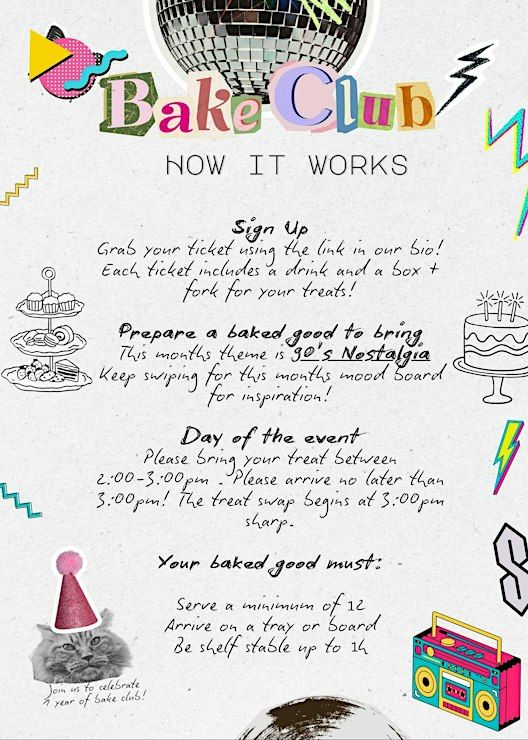 Bake Club
HOW IT WORKS
Sign Up
Grab your ticket using the link in our bio!
Each ticket includes a drink and a box +
fork for your treats!
Prepare a baked good to bring
This months theme is 90's Nostalgia
Keep swiping for this months mood board
for inspiration!
Day of the event
Please bring your treat between
2:00-3:00pm . Please arrive no later than
3:00pm! The treat swap begins at 3:00pm
sharp.
Your baked good must:
Serve a minimum of 12
Arrive on a tray or board
Be shelf stable up to 1h
Join us to celebrate
1 year of bake club!